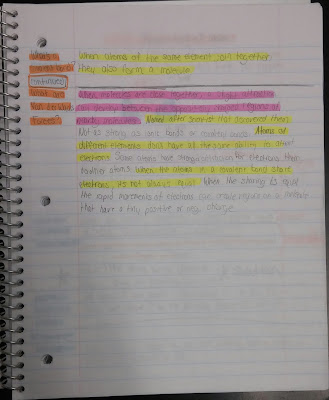 When atoms of the same element join together
they also form a molecule
continued
What are
Van der Waals
Forces?
When molecules are close together, a slight attraction
can develop between the oppositely charged regions of
nearby molecules. Named after scientist that discovered them.
Not as strong as ionic bonds or covalent bonds. Atoms of
different elements don't have all the same ability to attract
electrons. Some atoms have stronger attraction for electrons than
another atoms. When the atoms in a covalent bond share
electrons, its not always equal. When the sharing is equal
the rapid movements of electrons can create regions on a molecule
that have a tiny positive or neg. charge.